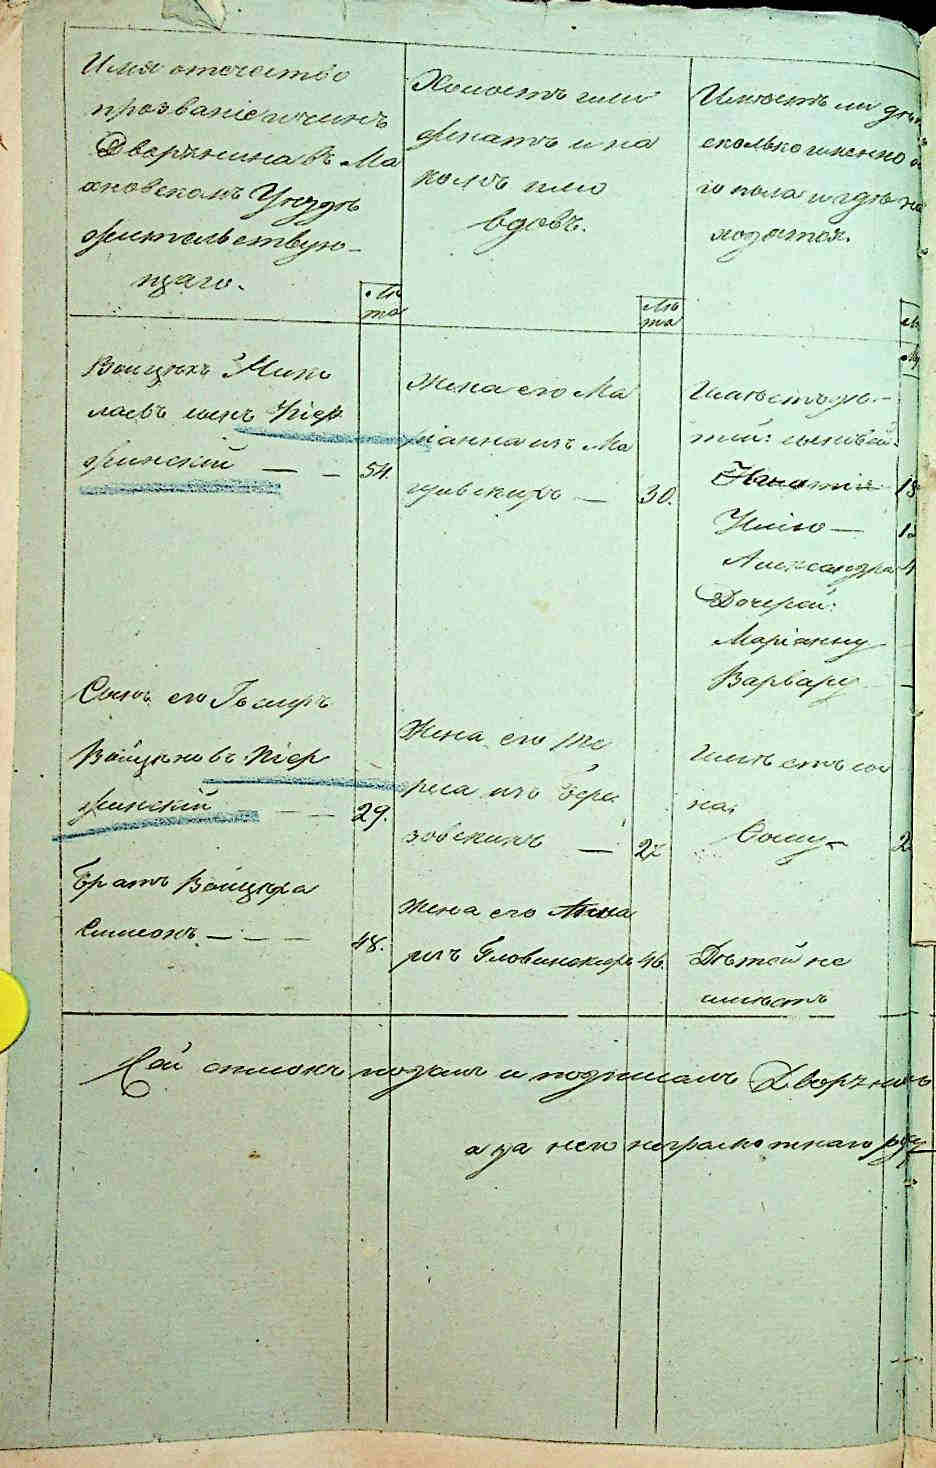 Имя отчество
прозваніе и чинъ
Дворянина въ Ма
хновскомъ Уѣздѣ
жительствую-
щаго.
Лѣ
та
Холостъ или
женатъ и на
комъ или
вдовъ.
Лѣ
та
Имѣетъ ли дѣ
сколько именно
го пола и гдѣ на
ходятся.
Войцѣхъ Нико
лаевъ сынъ Кіер
жинскій — — 54.
Жена его Ма
ріанна изъ Ма
— 30.
Имѣетъ дѣ-
тей: сыновей:
Игнатія 18
Юлію — 12
Александра 4
Дочерей:
Маріанну
Варвару
Сынъ его
Войцѣховъ Кіер
жинскій — — 29.
Жена его Те
реса изъ Бере
зовскихъ — 22
Имѣетъ сы
на:
Фому — 2
Братъ Войцѣха
Симеонъ — — — 48.
Жена его Анна
изъ Гловинскихъ 46.
Дѣтей не
имѣетъ
Сей списокъ подалъ и подписалъ Дворянинъ
а за него неграмотнаго